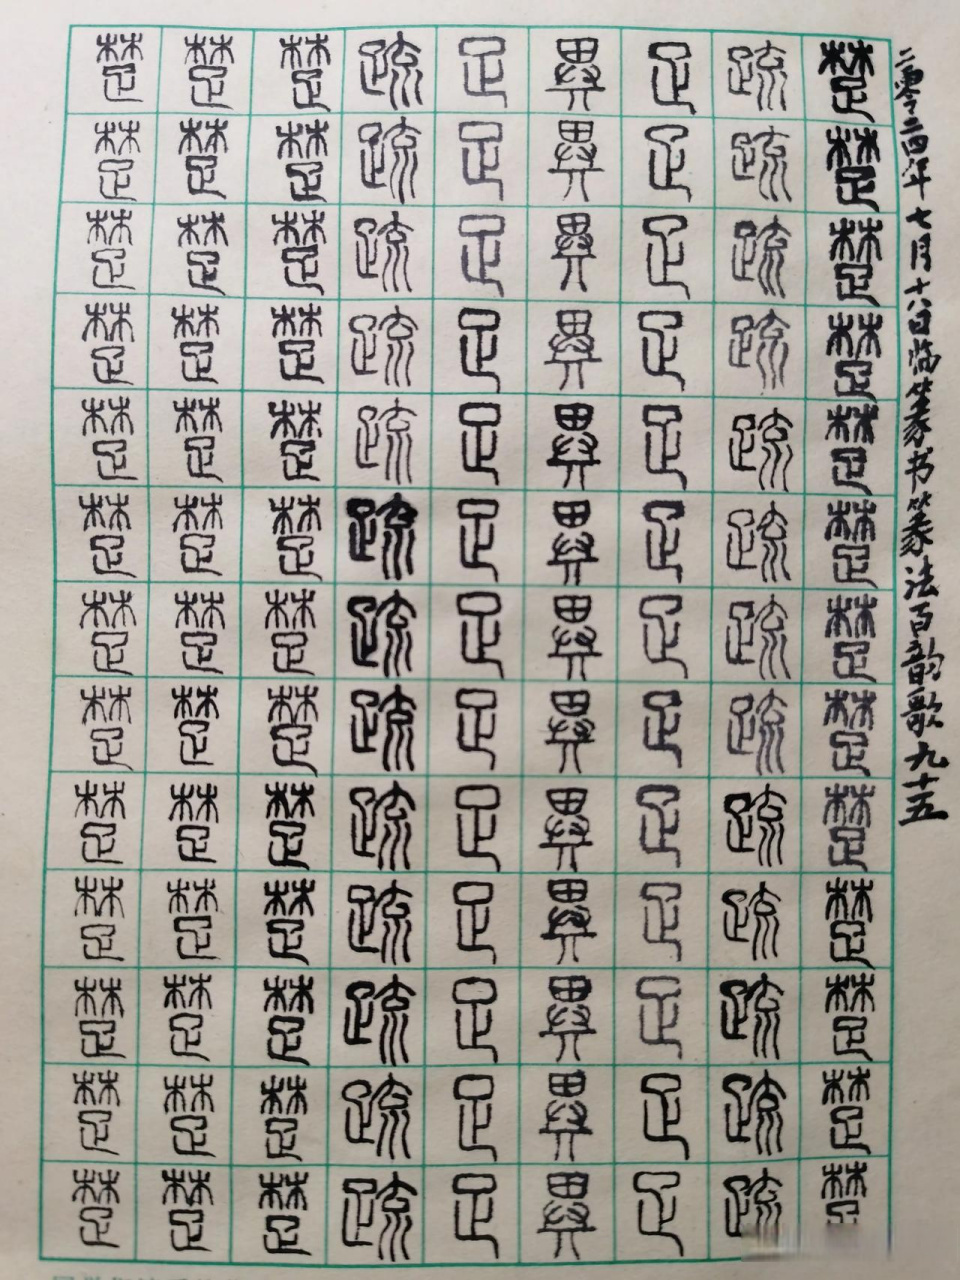 二零二四年七月十八日临篆书篆法百韵歌九十五
楚楚楚楚楚楚楚楚楚楚楚楚楚
疏疏疏疏疏疏疏疏疏疏疏疏疏
疋疋疋疋疋疋疋疋疋疋疋疋疋
異異異異異異異異異異異異異
足足足足足足足足足足足足足
疏疏疏疏疏疏疏疏疏疏疏疏疏
楚楚楚楚楚楚楚楚楚楚楚楚楚
楚楚楚楚楚楚楚楚楚楚楚楚楚
楚楚楚楚楚楚楚楚楚楚楚楚楚